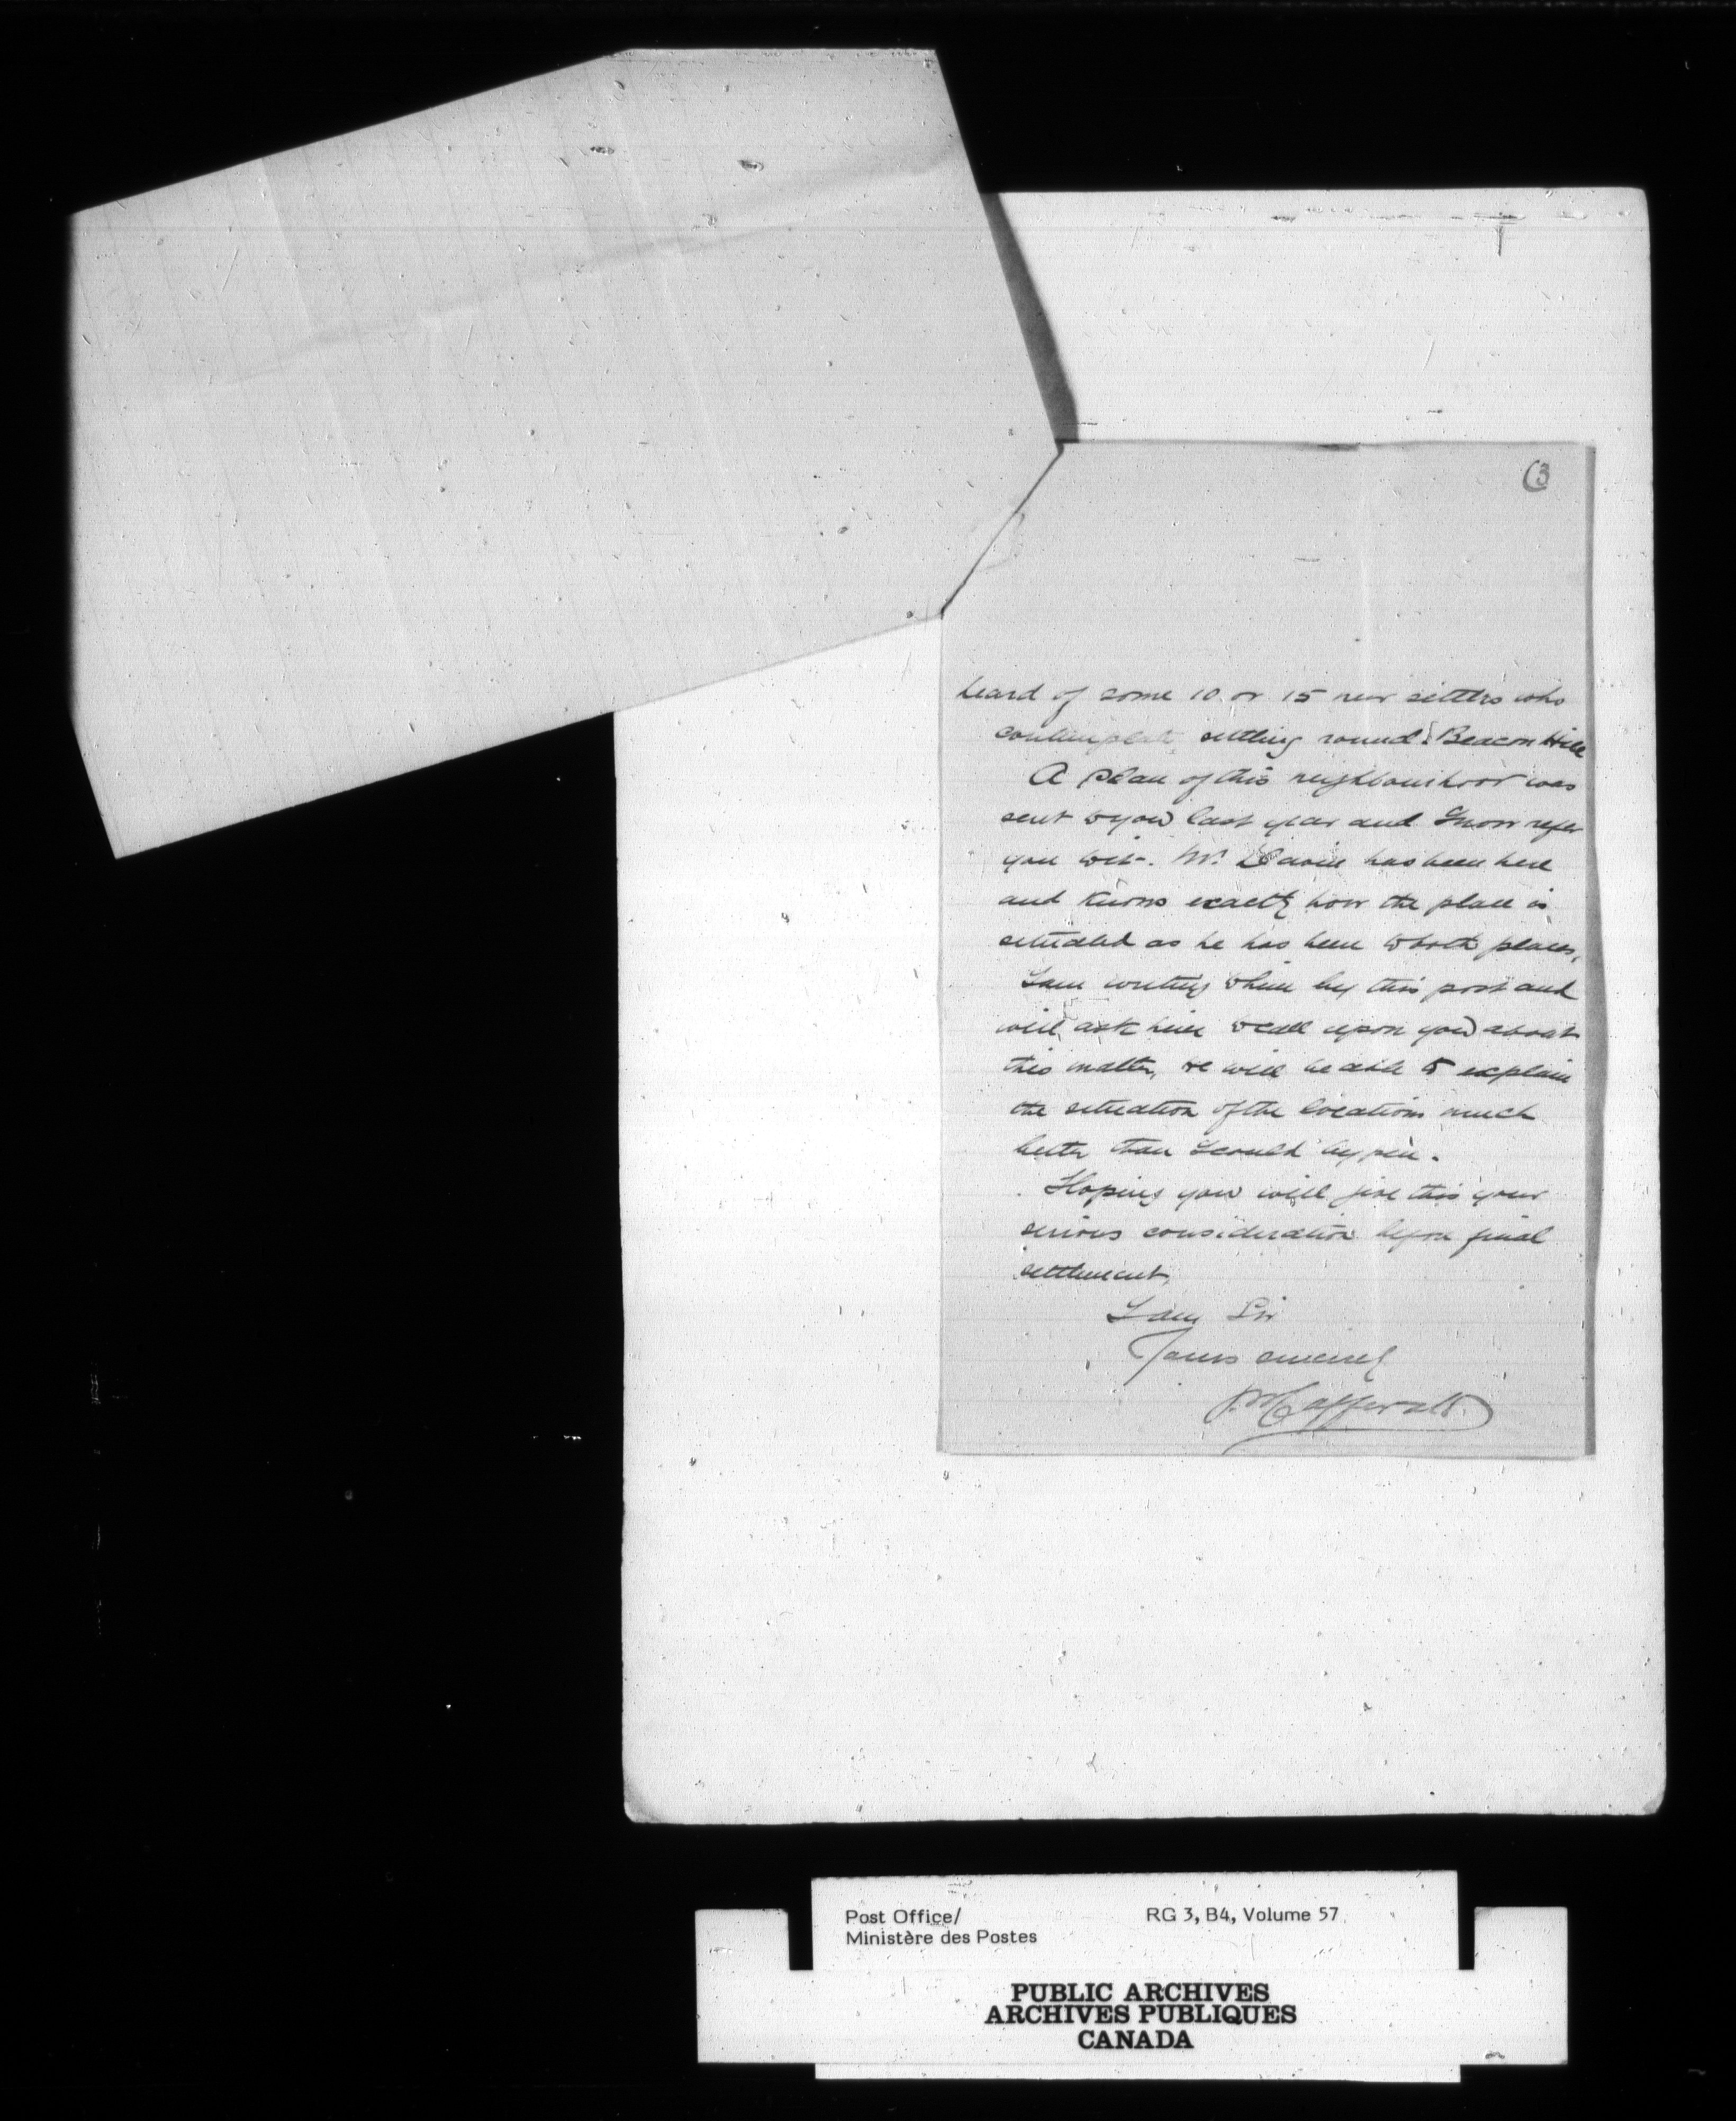 (3
heard of some 10 or 15 new settlers who
contemplate settling round Beacon Hill
A plan of this neighbourhood was
sent to you last year and I now refer
you to it. Mr. Davin has been here
and knows exactly how the place is
situated as he has been to both places,
I am writing to him by this post and
will ask him to call upon you about
this matter, he will be able to explain
the situation of the locations much
better than I could by pen.
Hoping you will give this your
serious consideration before final
settlement,
I am Sir
Yours sincerely
Post Office/
Ministère des Postes
RG 3, B4, Volume 57
PUBLIC ARCHIVES
ARCHIVES PUBLIQUES
CANADA